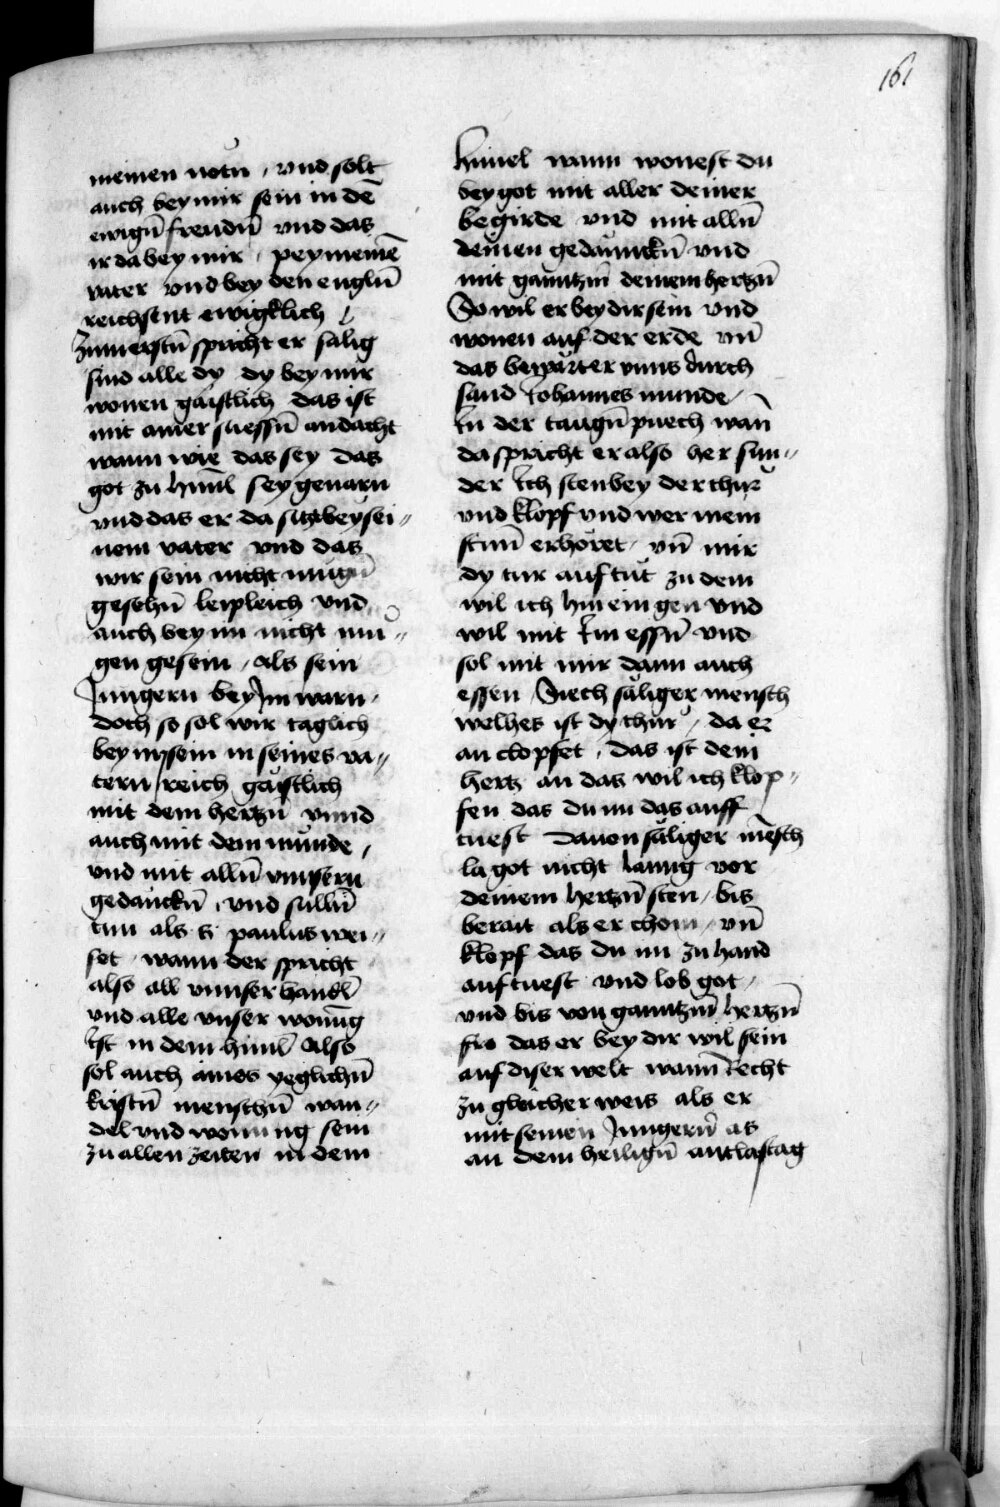 161
meinen notn̄ / vnd solt
auch bey mir sein in dē
ewigñ freudñ vnd das
ir da bey mir / pey meinē
vater vnd bey den englñ
reichsent ewigklich /
Zumerstñ spricht er sälig
sind alle dy dy bey mir
wonen gaistlich das ist
mit ainer suessñ andacht
wann wie das sey das
got zu himl sey genarn
vnd das er da sitzt bey sei //
nem vater vnd das
wir sein nicht mugñ
gesehñ leipleich vnd
auch bey im nicht mu //
gen gesein / als sein
Jungern bey Jm warn /
doch so sol wir taglich
bey im sein in seines va //
tern reich gaistlich
mit dem hertzñ vnnd
auch mit dem munde /
vnd mit allñ vnnsern
gedanckñ / vnd sullñ
tun als s paulus wei //
set / wann der spricht
also all vnnser handl̄
vnd alle vnser wonūg
Ist in dem himl̄ Also
sol auch aines yeglichñ
kristñ menschñ wan //
del vnd wonung sein
zu allen zeiten in dem
himel wann wonest du
bey got mit aller deiner
begirde vnd mit allñ
deinen gedannckñ vnd
mit ganntzm̄ deinem hertzñ
So wil er bey dir sein vnd
wonen auf der erde vn̄
das bewärter vnns durch
sand Johannes munde /
In der taugñ puech wan̄
da spricht er also her sun //
der Ich sten bey der thür
vnd klopf vnd wer mein
stim̄ erhöret / vn̄ mir
dy tür auf tut zu dem
wil ich hin ein gen vnd
wil mit Im essñ vnd
sol mit mir dann auch
essen / Siech säliger mensch
welhes ist dy thür / da er
an clopfet / das ist dein
hertz an das wil ich klop //
fen das du im das auff
tuest Dauon säliger mēsch
la got nicht lanng vor
deinem hertzñ sten / bis
berait als er chom / vn̄
klopf das du im zu hand
auf tuest vnd lob got /
vnd bis von ganntzm̄ hertzñ
fro das er bey dir wil sein
auf diser welt wann̄ Recht
zu gleicher weis als er
mit seinen Jungern̄ as
an dem heiligñ antlastag